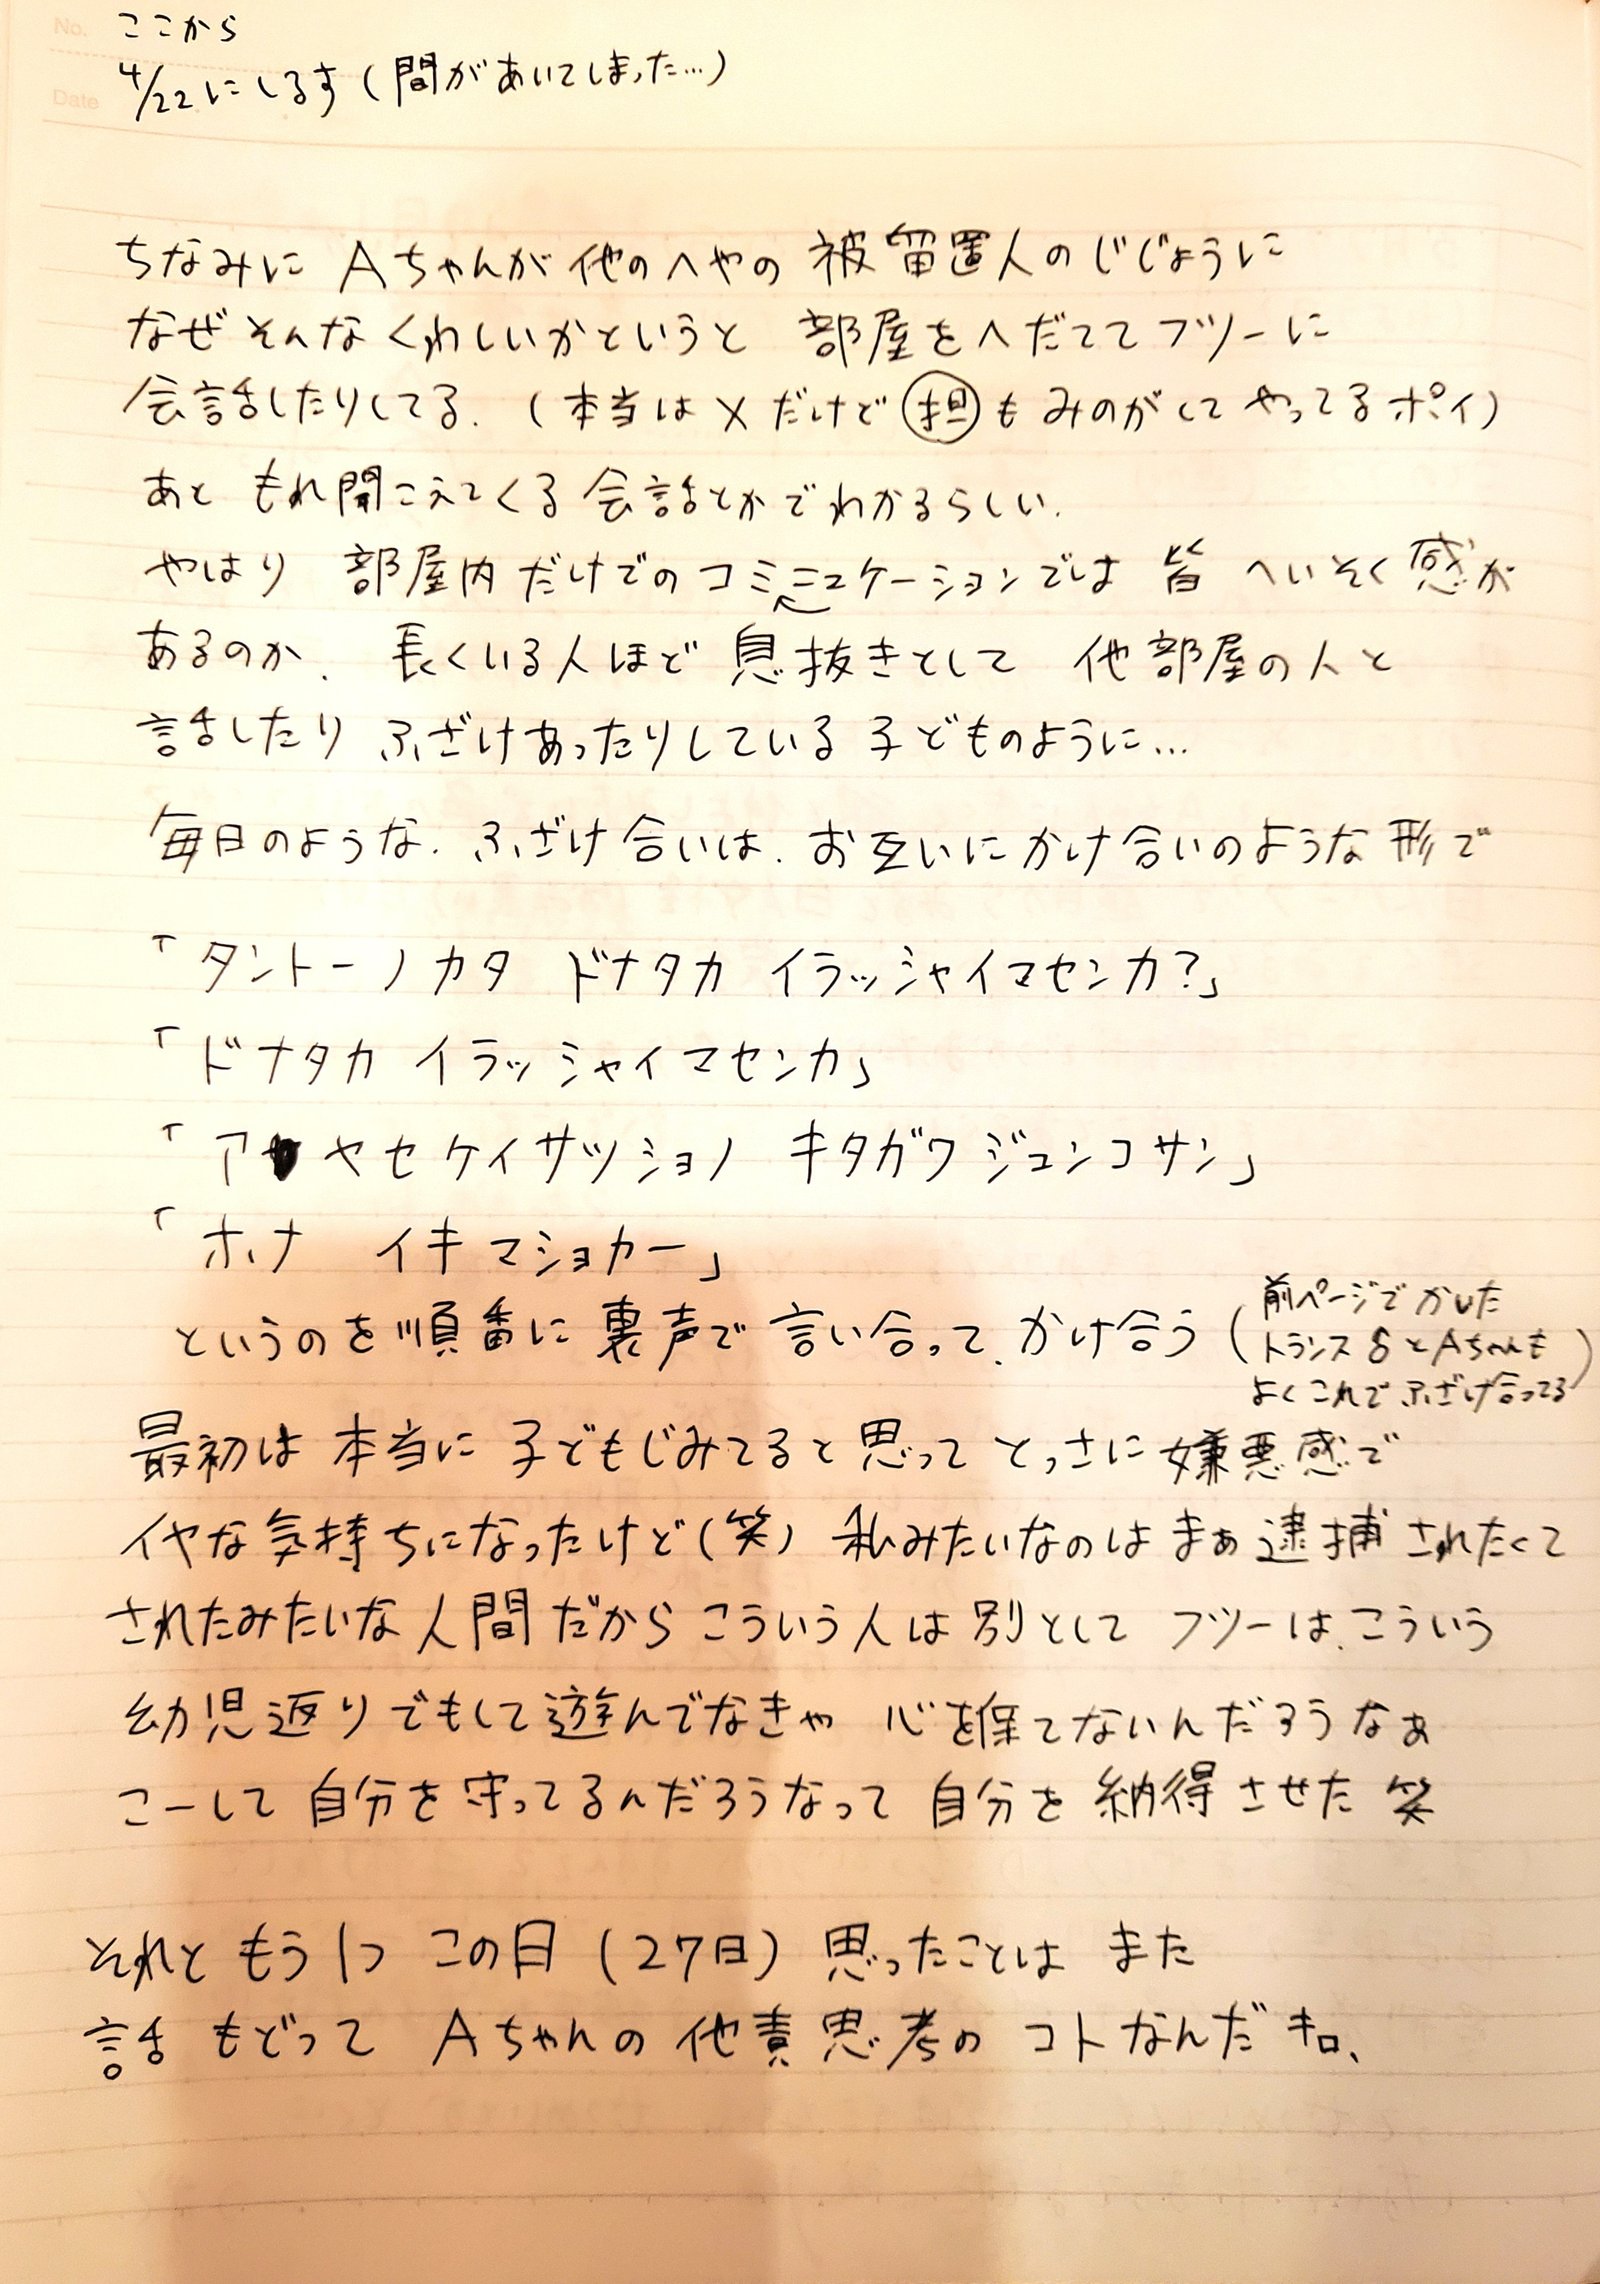 No.
ここから
Date
4/22にしるす(間があいてしまった…)
ちなみに Aちゃんが他のへやの 被留置人のじじょうに
なぜそんなくわしいかというと 部屋をへだててフツーに
会話したりしてる.(本当は×だけど担もみのがしてやってるポイ)
あと もれ聞こえてくる会話とかでわかるらしい.
やはり 部屋内だけでのコミニュケーションでは 皆 へいそく感が
あるのか、長くいる人ほど 息抜きとして 他部屋の人と
話したり ふざけあったりしている 子どものように…
毎日のような、ふざけ合いは、お互いにかけ合いのような形で
「タントーノカタ ドナタカ イラッシャイマセンカ?」
「ドナタカ イラッシャイマセンカ」
「アヤセケイサツショノ キタガワジュンコサン」
「ホナ イキマショカー」
というのを順番に裏声で言い合って、かけ合う(前ページでかいた
トランス♂とAちゃんも
よくこれでふざけ合ってる)
最初は本当に子どもじみてると思って とっさに嫌悪感で
イヤな気持ちになったけど(笑) 私みたいなのはまぁ逮捕されたくて
されたみたいな人間だからこういう人は別として フツーは、こういう
幼児返りでもして遊んでなきゃ 心を保てないんだろうなぁ
こーして自分を守ってるんだろうなって自分を納得させた 笑
それともう1つ この日(27日)思ったことは また
話もどって Aちゃんの他責思考のコトなんだキロ、